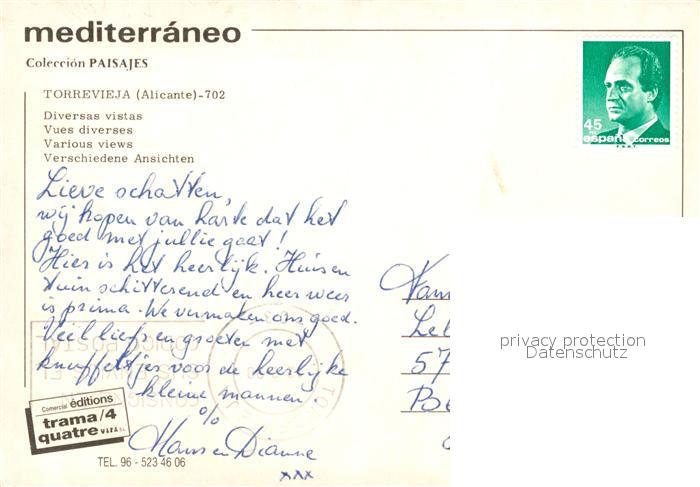 mediterráneo
Colección PAISAJES
TORREVIEJA (Alicante)-702
Diversas vistas
Vues diverses
Various views
Verschiedene Ansichten
45
españa correos
Lieve schatten,
wij hopen van harte dat het
goed met jullie gaat!
Hier is het heerlijk. Huis en
tuin schitterend en heer weer
is prima. We vermaken ons goed.
Veel liefs en groeten met
knuffeltjes voor de heerlijke
kleine mannen.
%
Hans en Dianne
xxx
57
privacy protection
Datenschutz
CODIGO POSTAL
Comercial éditions
trama/4
quatre
TEL. 96 - 523 46 06